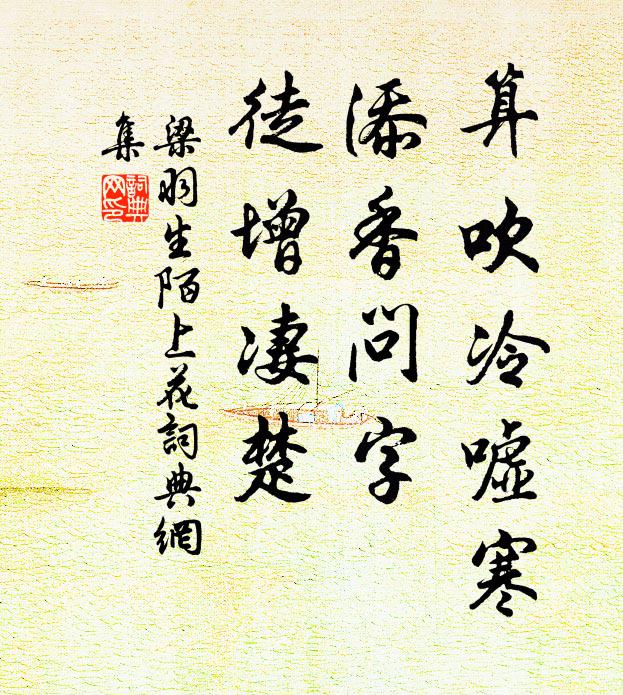 算吹冷噓寒
添香問字
徒增凄楚
梁羽生陌上花詞典網
集
詞典
网印